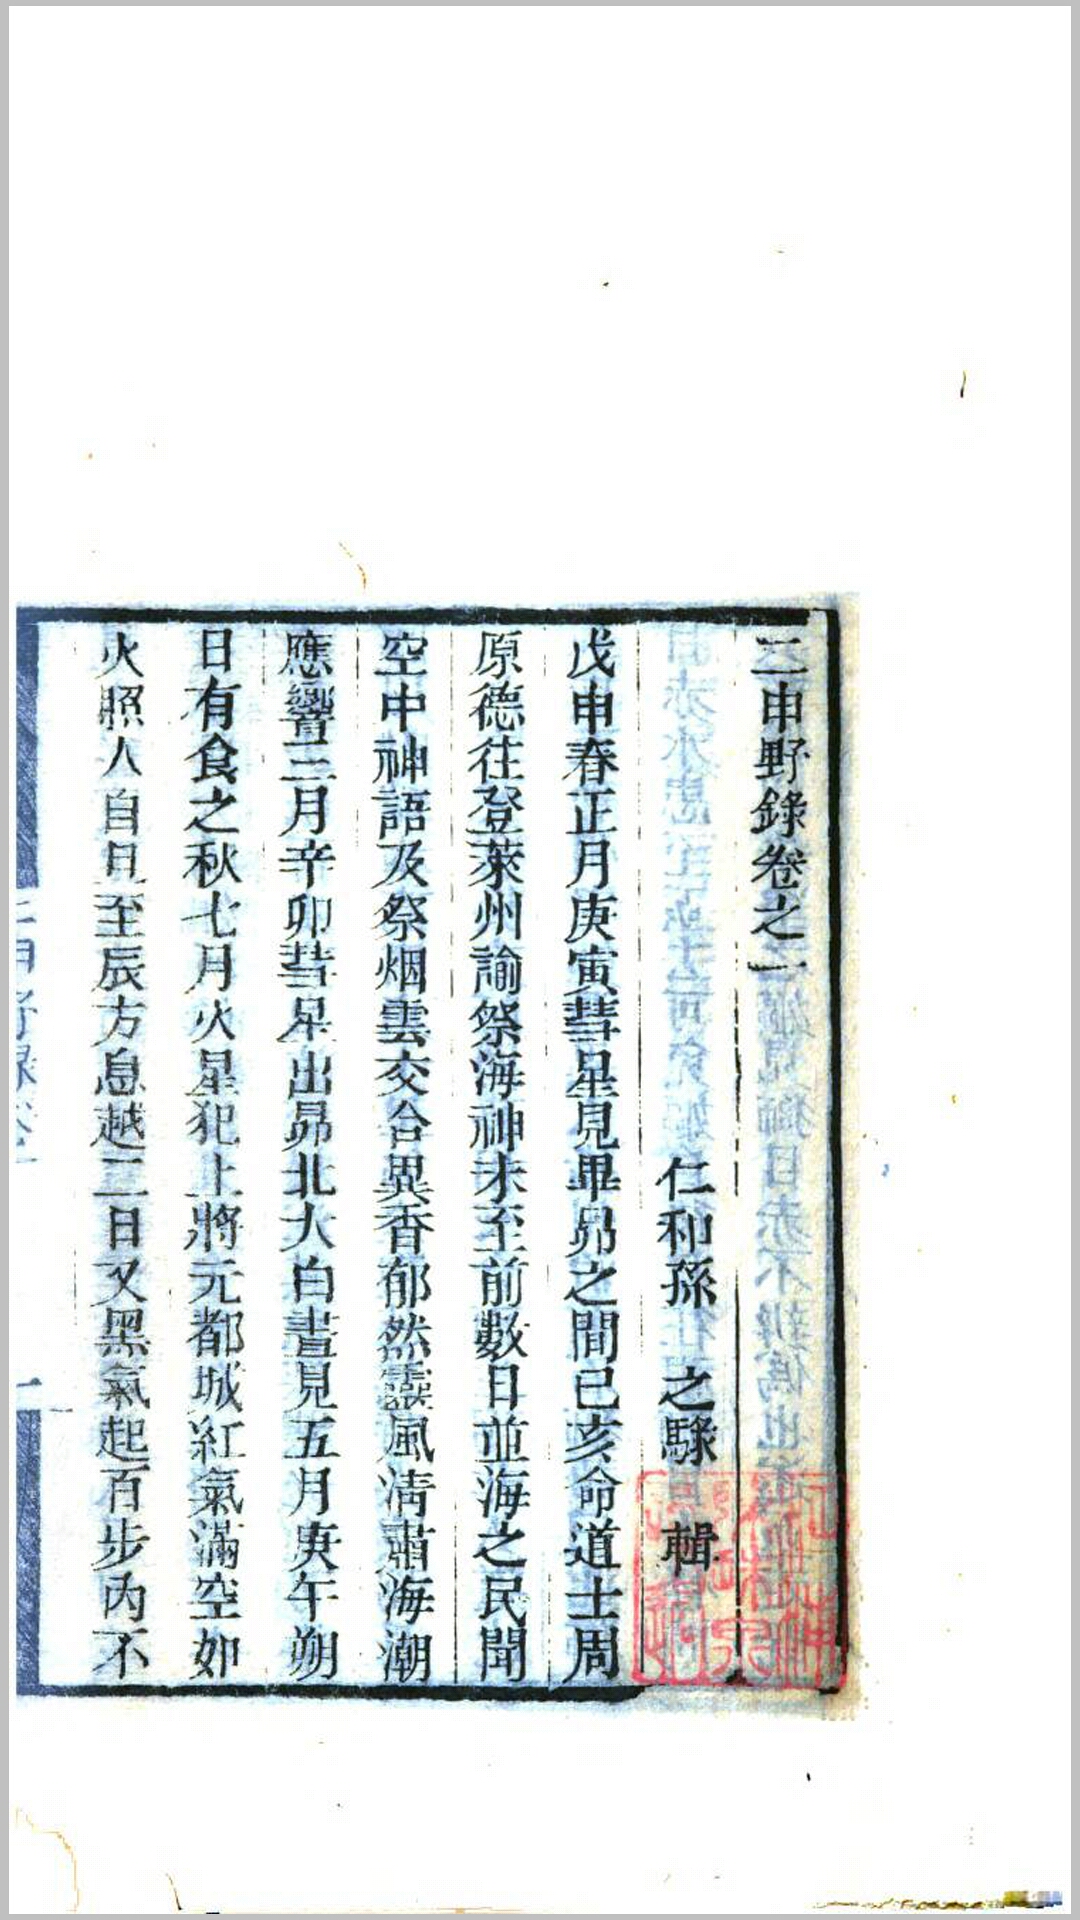 二申野錄卷之一
仁和孫 之騄 輯
戊申春正月庚寅彗星見畢昴之間己亥命道士周
原德往登萊州諭祭海神未至前數日並海之民聞
空中神語及祭烟雲交合異香郁然靈風清肅海潮
應響三月辛卯彗星出昴北大白晝見五月庚午朔
日有食之秋七月火星犯上將元都城紅氣滿空如
火照人自旦至辰方息越二日又黑氣起百步內不